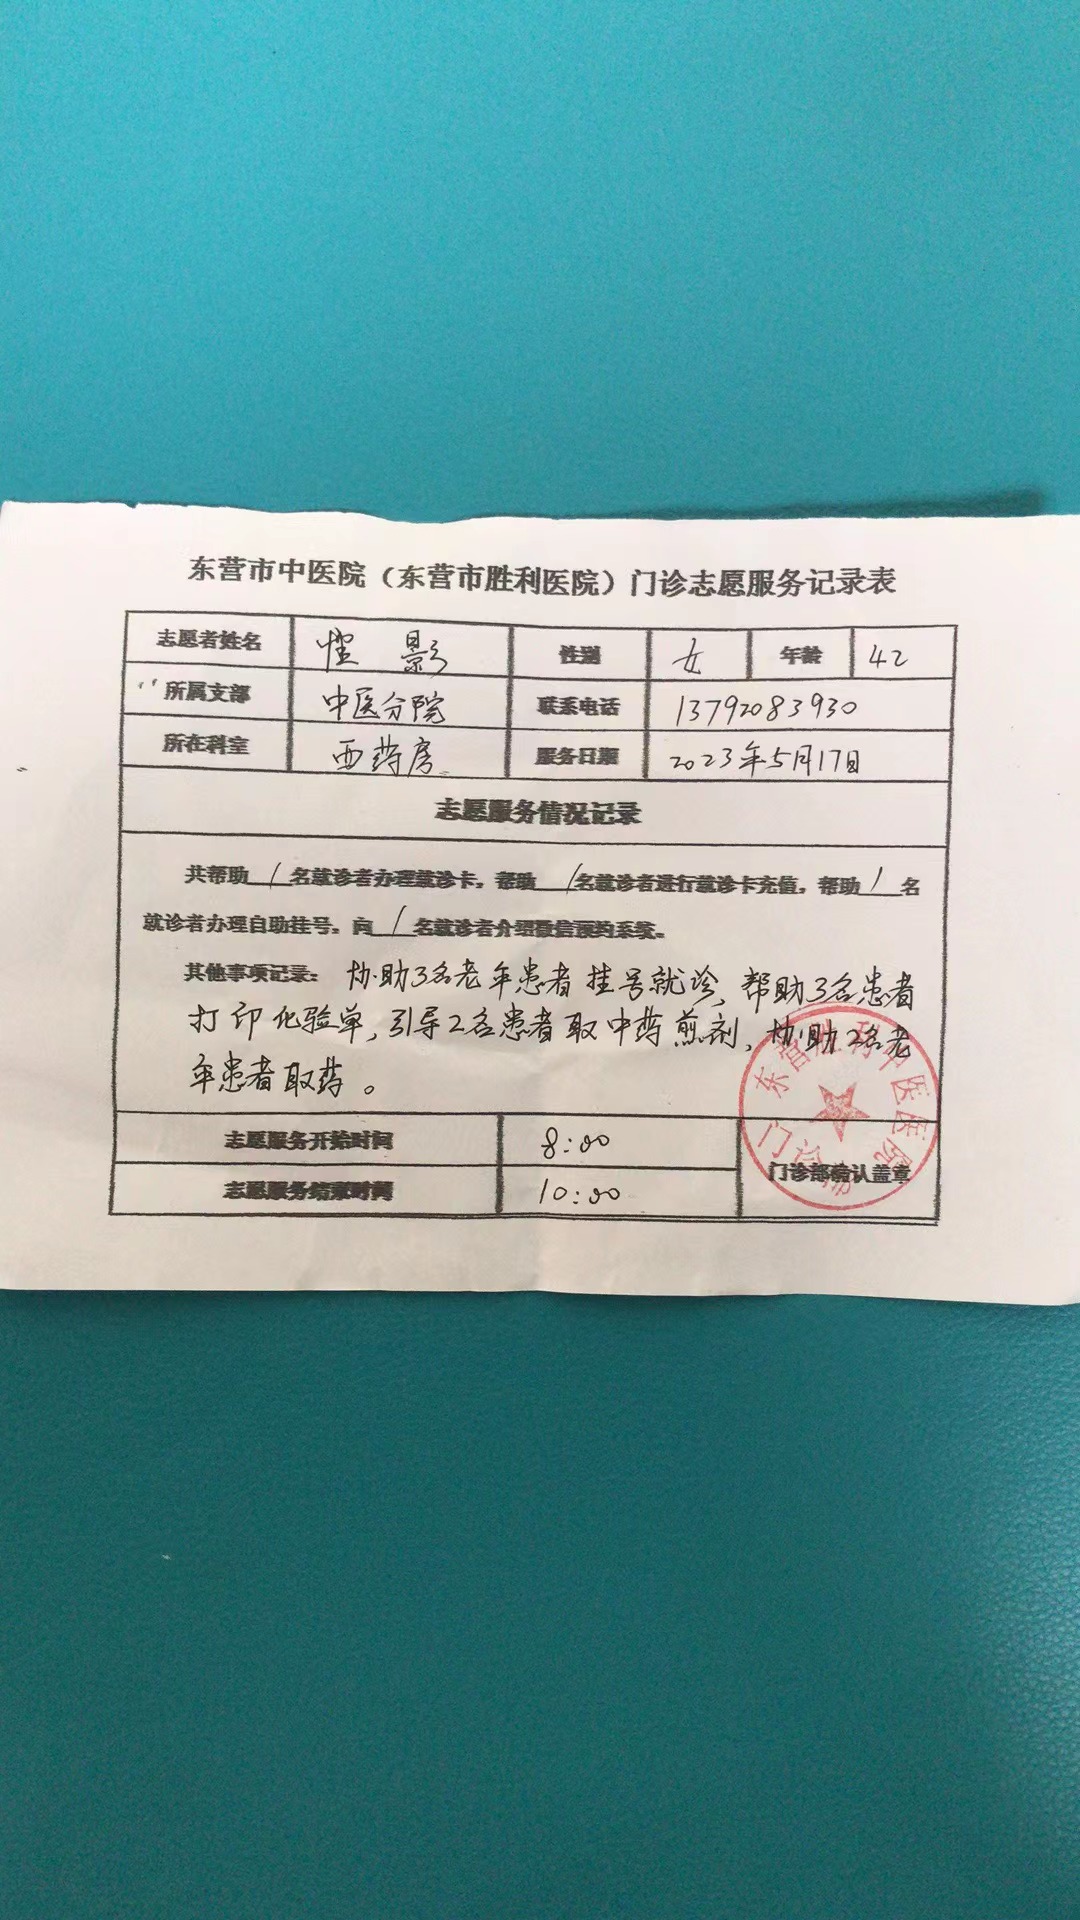 东营市中医院（东营市胜利医院）门诊志愿服务记录表
志愿者姓名 影 性别 女 年龄 42
所属支部 中医分院 联系电话 13792083930
所在科室 西药房 服务日期 2023年5月17日
志愿服务情况记录
共帮助1名就诊者办理就诊卡，帮助1名就诊者进行就诊卡充值，帮助1名
就诊者办理自助挂号。向1名就诊者介绍微信预约系统。
其他事项记录：协助3名老年患者挂号就诊，帮助3名患者
打印化验单，引导2名患者取中药煎剂，协助2名老
年患者取药。
志愿服务开始时间 8:00
志愿服务结束时间 10:00
门诊部确认盖章
东营胜利中医医院
门诊部